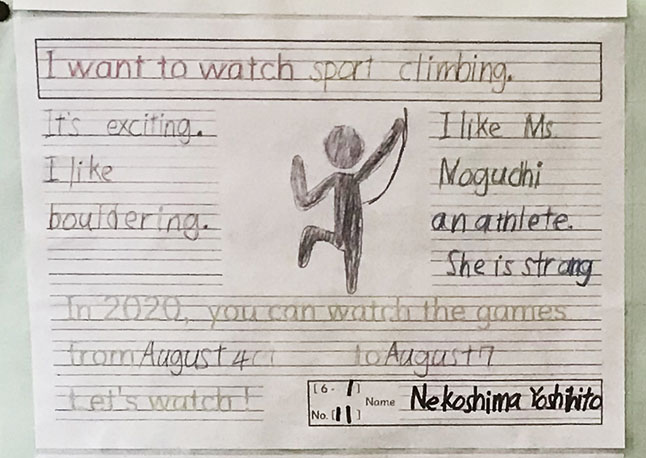 I want to watch sport climbing.
It's exciting.
I like
bouldering.
I like Ms.
Noguchi
an athlete.
She is strong
In 2020, you can watch the games
from August 4 to August 7
Let's watch!
[6 - 1]
No. [11]
Name Nekoshima Yoshihito